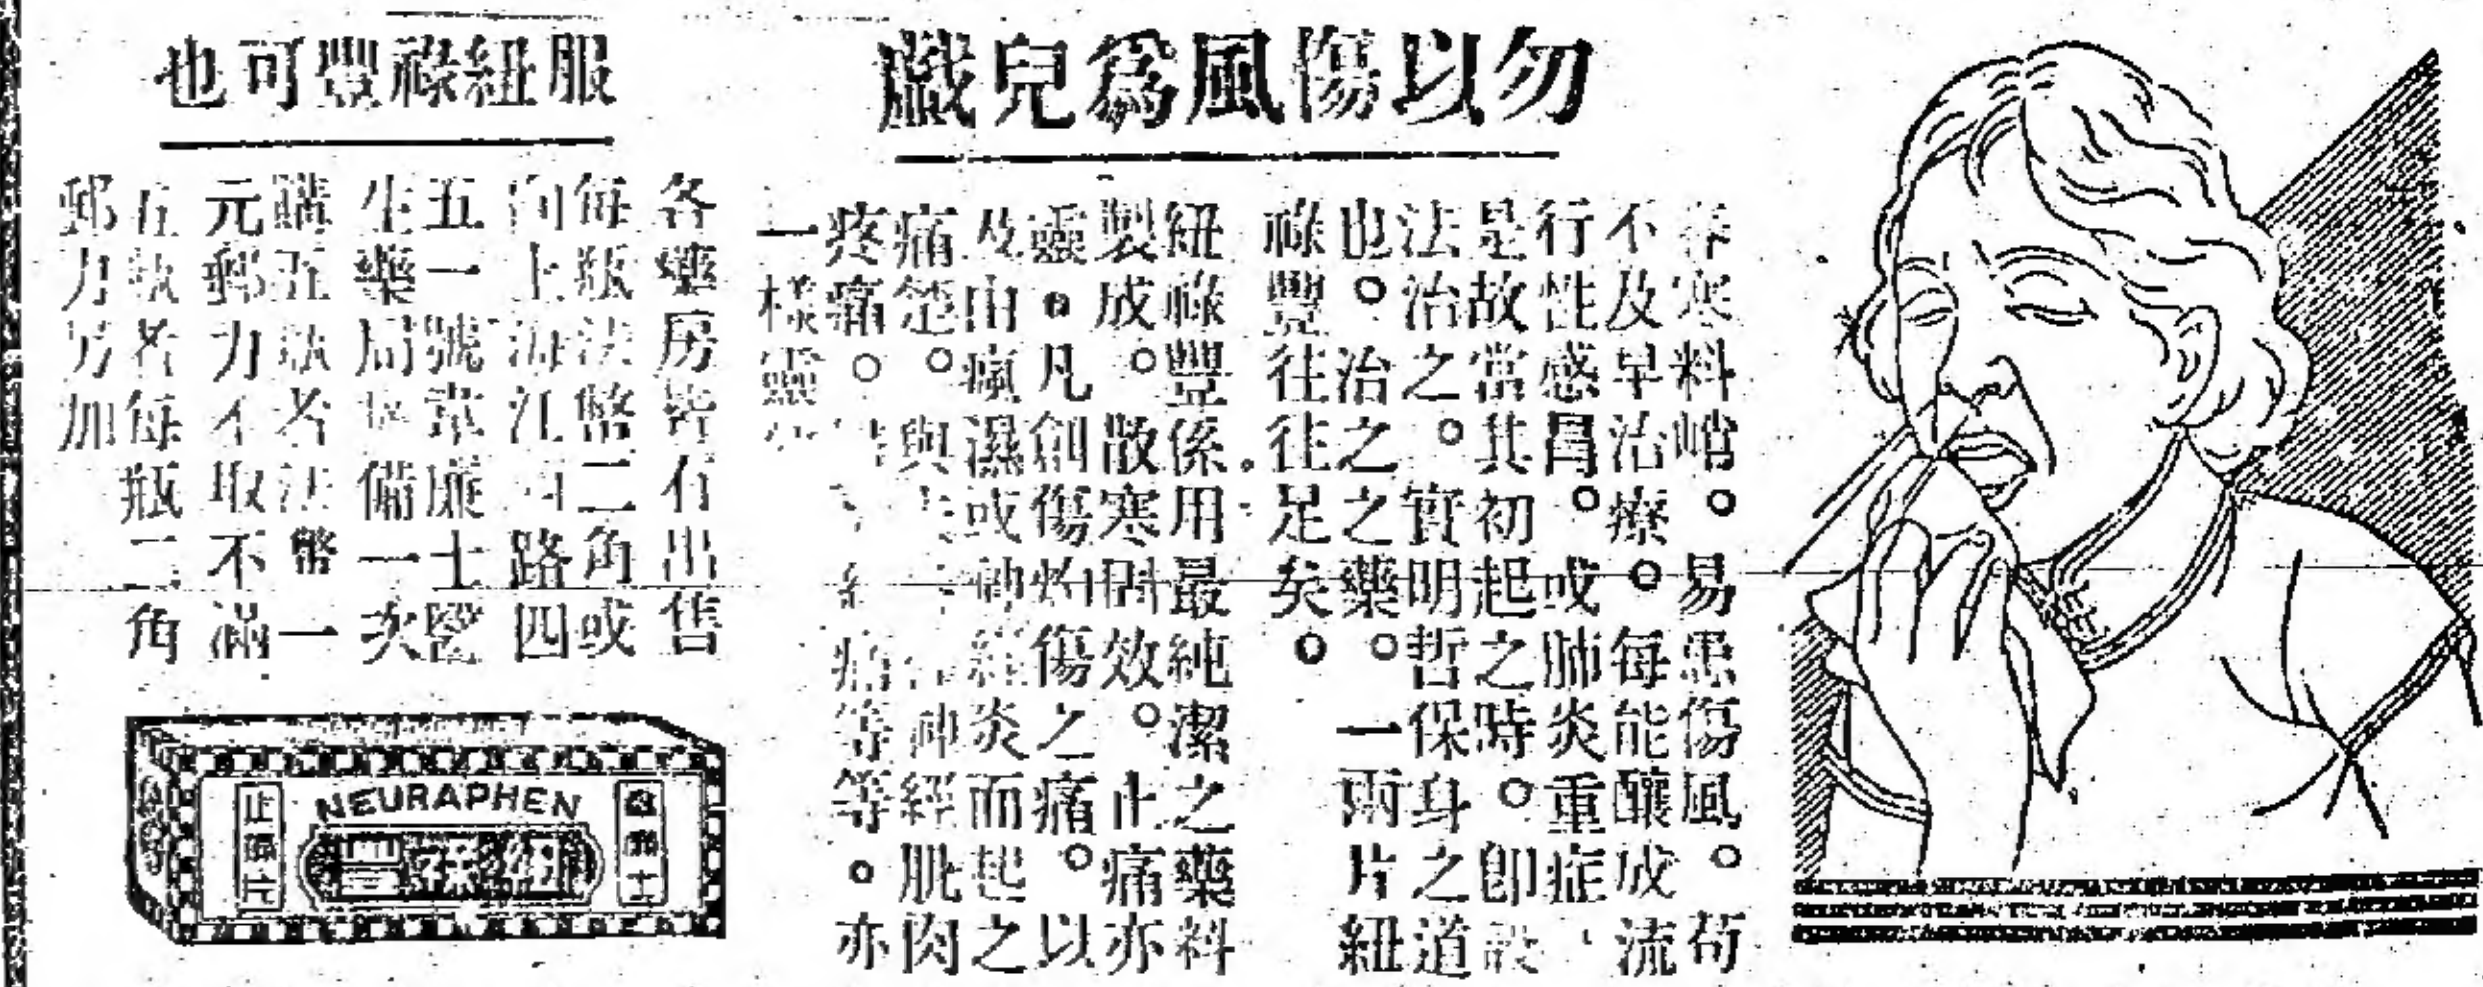 勿以傷風為兒戲
服紐祿豐可也
春寒料峭。易患傷風。苟
不及早治療。每能釀成流
行性感冒。或肺炎重症
是故當其初起之時。即設
法治之。實明哲保身之道
也。治之之藥。一兩片紐
祿豐往往足矣。
紐祿豐係用最純潔之藥料
製成。散寒固效。止痛亦
靈。凡創傷灼傷之痛。以
及由瘋濕或神經炎而起之
痛楚。與神經肌肉
疼痛。等等。亦
一樣靈
各藥房皆有出售
每瓶法幣二角或
向上海江西路四
五一號韋廉士醫
生藥局備一次
購五瓶者法幣一
元郵力不取不滿
五瓶者每瓶二角
郵力另加
NEURAPHEN
紐祿豐
韋廉士
止痛片